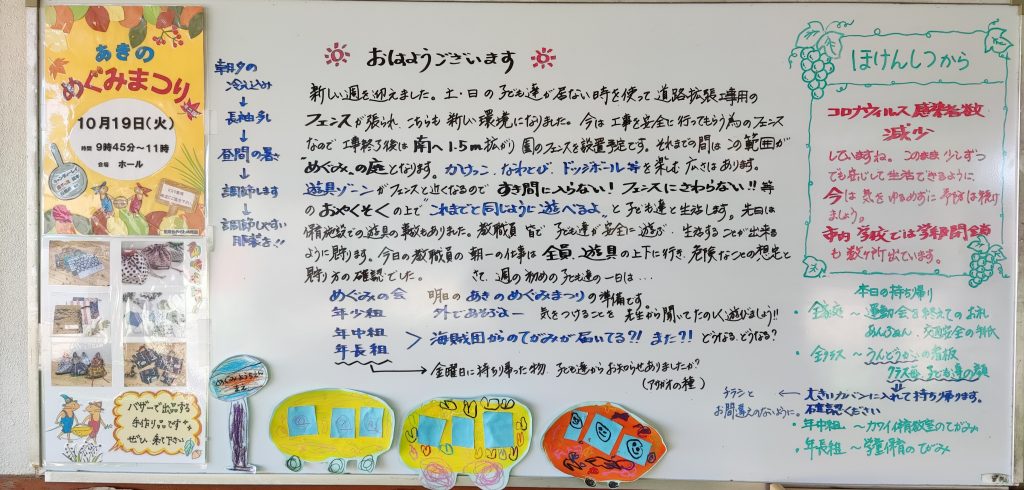 あきの
めぐみまつり
10月19日(火)
時間 9時45分~11時
会場 ホール
バザーで出品する
手作り品です
ぜひ、来て下さい
朝夕の
冷え込み
↓
長袖多し
↓
昼間の暑さ
↓
調節します
↓
調節しやすい
服装を!!
おはようございます
新しい週を迎えました。土・日の子ども達が居ない時を使って道路拡張工事用の
フェンスが張られ、こちらも新しい環境になりました。今は工事を安全に行ってもらう為のフェンス
なので工事終了後は南へ1.5m拡がり園のフェンスを設置予定です。それまでの間はこの範囲が
"めぐみの庭"となります。かけっこ、なわとび、ドッジボール等を楽しむ広さはあります。
遊具ゾーンがフェンスと近くなるので すき間に入らない!フェンスにさわらない!!等
のおやくそくの上で"これまでと同じように遊べるよ"と子ども達と生活します。先日は
保育施設での遊具の事故もありました。教職員皆で子ども達が安全に遊び、生活することが出来る
ように努ります。今日の教職員の朝一の仕事は全員、遊具の上下に行き、危険なことの想定と
努り方の確認でした。 さて、週の初めの子ども達の一日は…
めぐみの会 明日のあきのめぐみまつりの準備です。
年少組 外であそぶよー 気をつけることを先生から聞いてたのしく遊びましょう!!
年中組
年長組 > 海賊団からのてがみが届いてる?! また?! どうなる、どうなる?
→金曜日に持ち帰った物、子ども達からお知らせありましたか?
(アサガオの種)
めぐみようちえん
ほけんしつから
コロナウィルス感染者数
減少
していますね。このまま少しずつ
でも安心して生活できるように
今は気をゆるめずに予防は続け
ましょう。
市内 学校では学級閉鎖
も数ヶ所出ています。
本日の持ち帰り
・全家庭~運動会を終えてのお礼
あんふぁん、交通安全の手紙
・全クラス~うんどうかいの看板
クラス毎 子ども達の顔
チラシと ← 大きいカバンに入れて持ち帰ります。
お間違えのないように。 確認ください
・年中組~カワイ体育教室のてがみ
・年長組~学童保育のてがみ